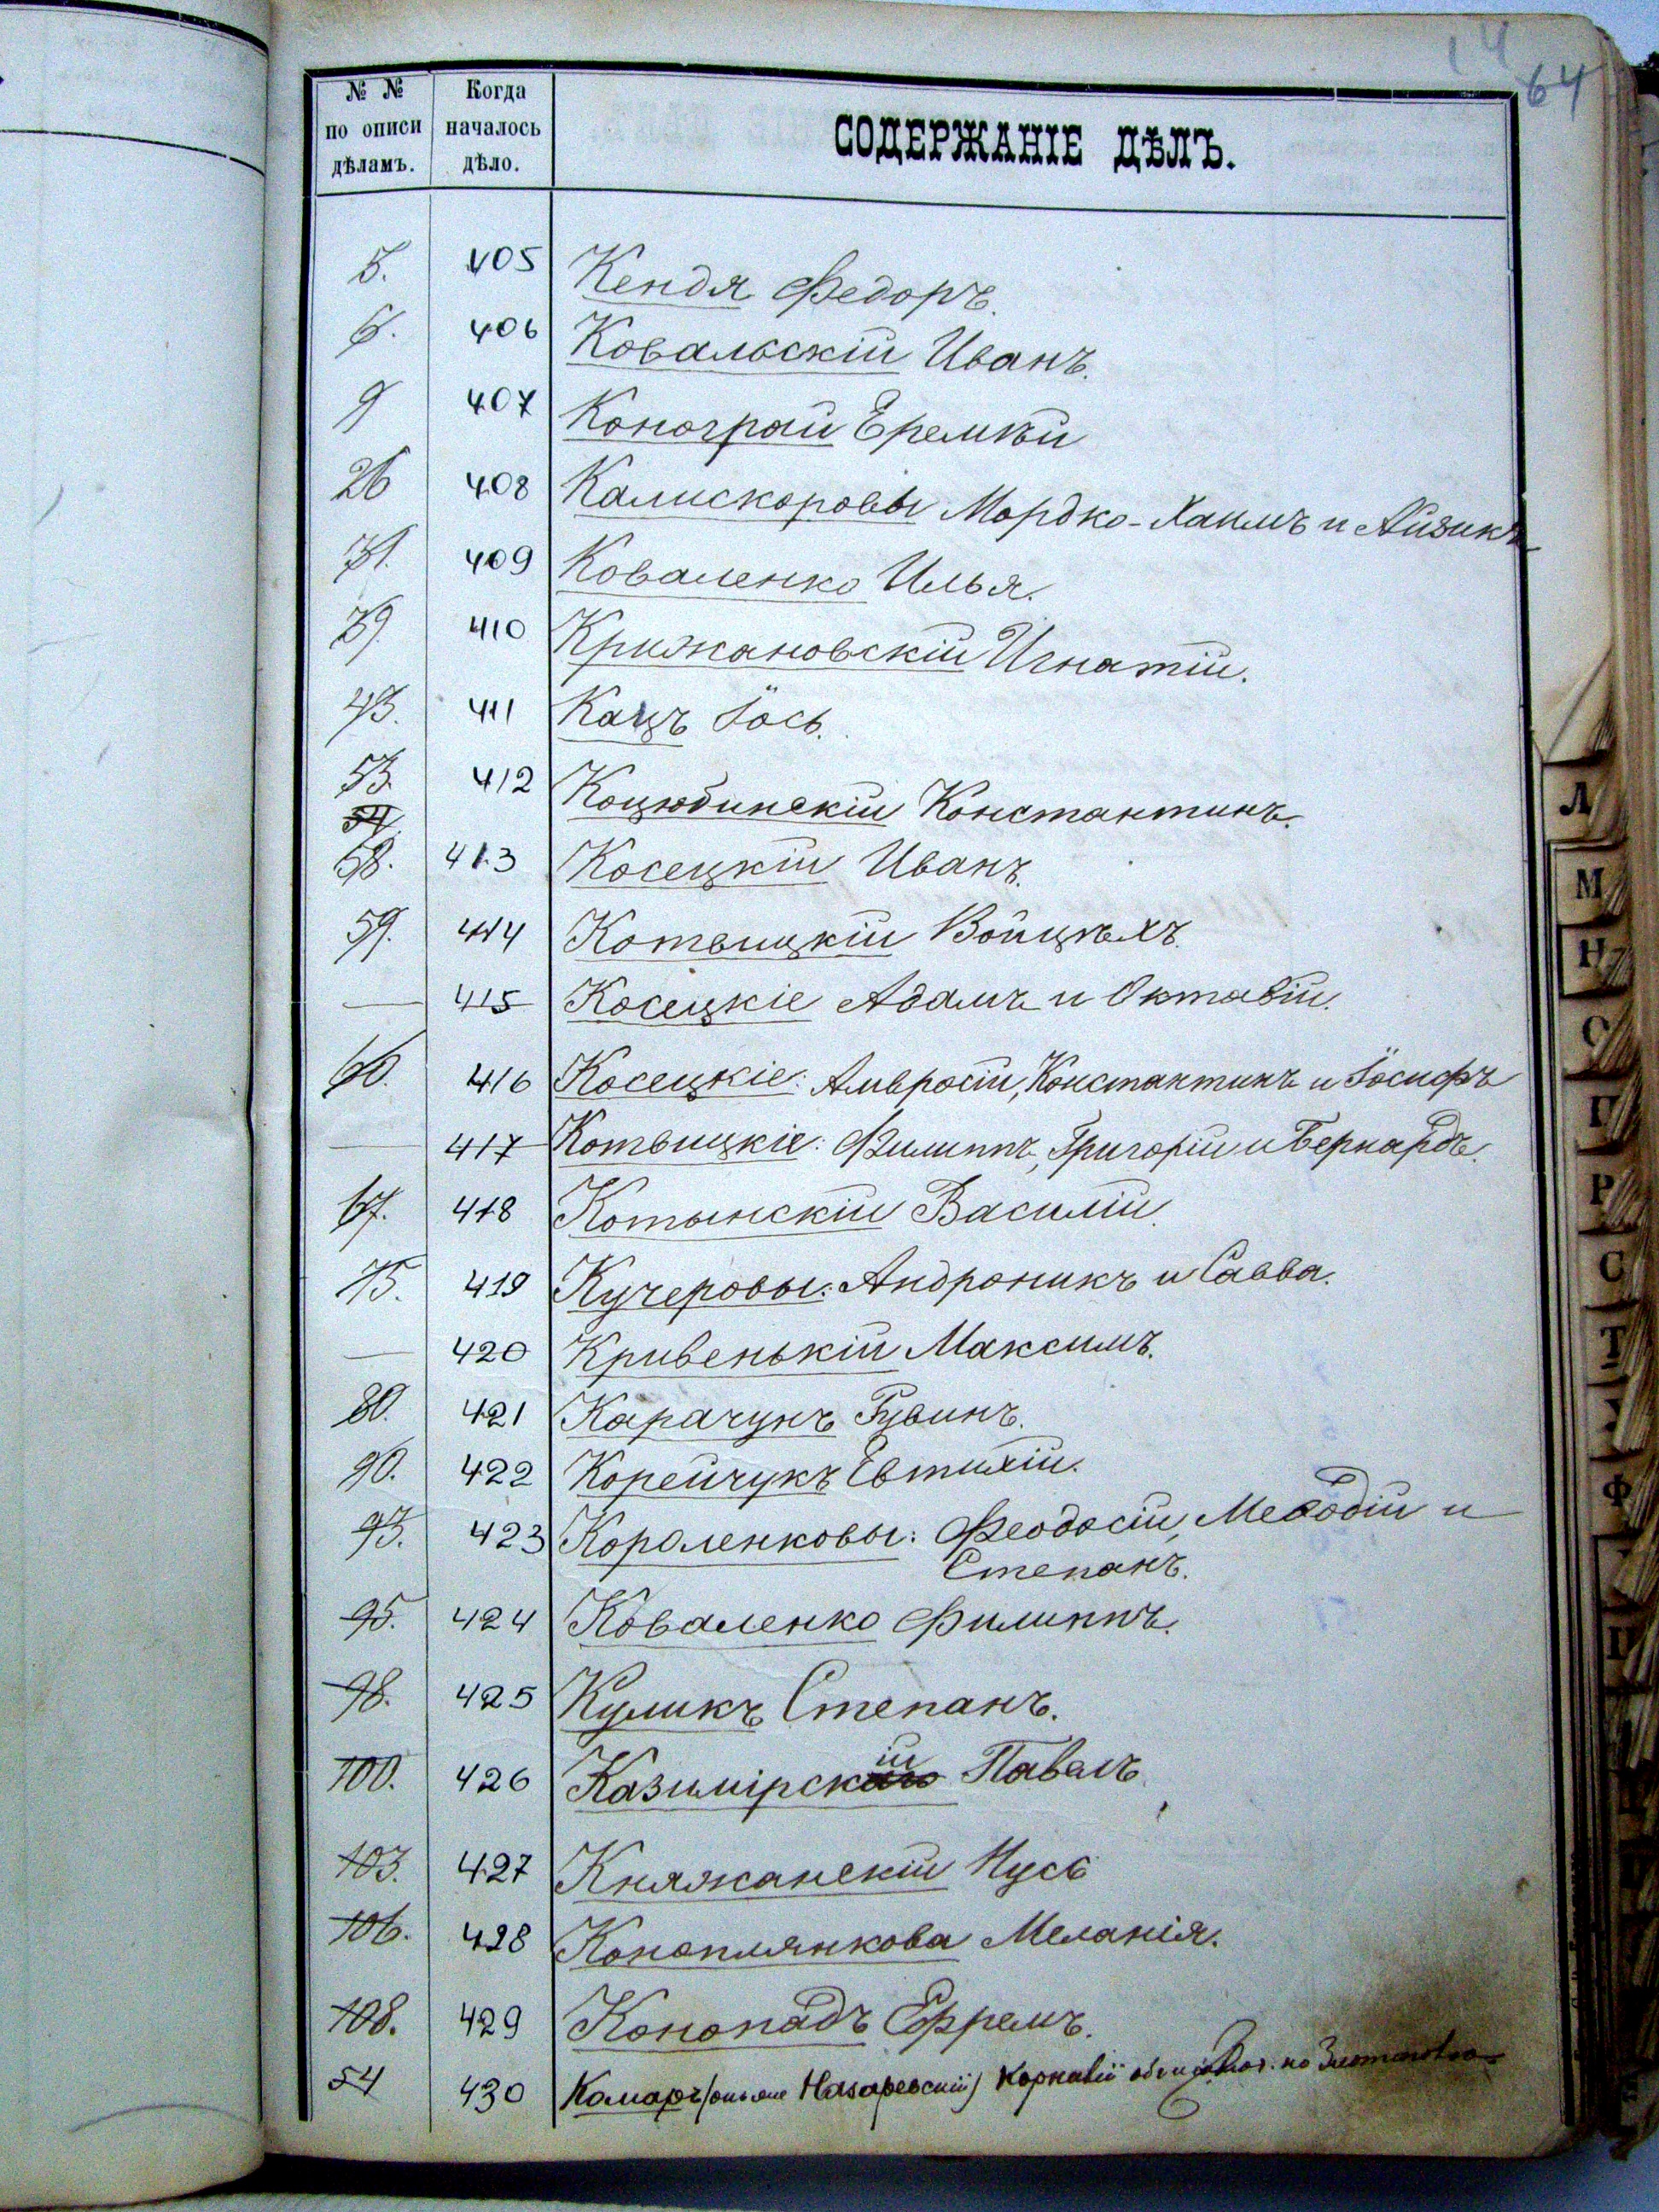 14
64
№ № по описи дѣламъ. Когда началось дѣло. СОДЕРЖАНІЕ ДѢЛЪ.
5. 405 Кендя Федоръ.
6. 406 Ковальскій Иванъ.
9 407 Конограй Еремѣй
26 408 Калискоровы Мордко-Хаимъ и Айзикъ
31. 409 Коваленко Илья.
39. 410 Крижановскій Игнатій.
43. 411 Кацъ Іось.
53. 412 Коцюбинскій Константинъ.
54.
58. 413 Косецкій Иванъ.
59. 414 Котвицкій Войцѣхъ.
— 415 Косецкіе Адамъ и Октавій.
60. 416 Косецкіе: Амвросій, Константинъ и Іосифъ
— 417 Котвицкіе: Филиппъ, Григорій и Бернардъ.
67. 418 Котынскій Василій.
75. 419 Кучеровы: Андроникъ и Савва.
— 420 Кривенькій Максимъ.
80. 421 Карачунъ Рувинъ.
90. 422 Корейчукъ Евтихій.
93. 423 Короленковы: Феодосій, Мефодій и
Степанъ.
95. 424 Коваленко Филиппъ.
98. 425 Куликъ Степанъ.
100. 426 Казимірскій Павелъ.
103. 427 Княжанскій Нусь
106. 428 Коноплянкова Меланія.
108. 429 Конопадъ Ефремъ.
54 430 Комаръ Назаревскій) Корнилій
Л
М
Н
О
П
Р
С
Т
Ф